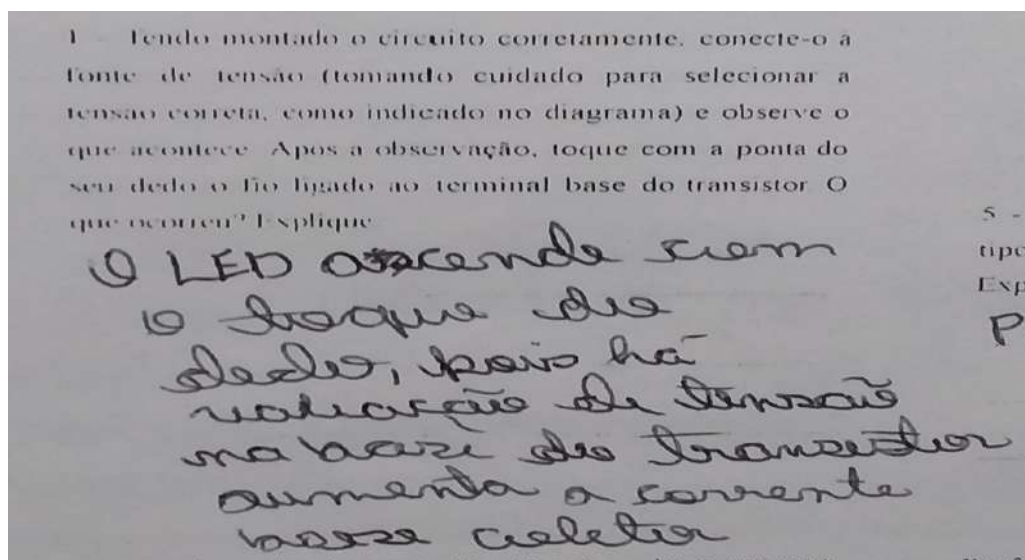 1 - Tendo montado o circuito corretamente, conecte-o à
fonte de tensão (tomando cuidado para selecionar a
tensão correta, como indicado no diagrama) e observe o
que acontece. Após a observação, toque com a ponta do
seu dedo o fio ligado ao terminal base do transistor. O
que ocorreu? Explique
O LED ascende com
o toque do
dedo, pois há
variação de tensão
na base do transistor
aumenta a corrente
base coletor
5 -
tipo
Exp
P